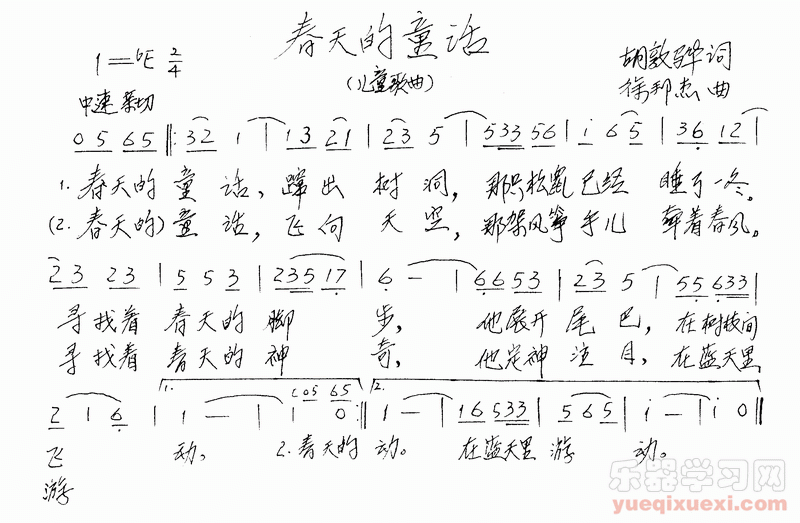 春天的童话
(儿童歌曲)
1=bE 2/4
胡敦骅词
中速 亲切
徐邦杰曲
0 5 6 5 ‖: 3 2 1 | 1 3 2 1 | 2 3 5 | 5 3 3 5 6 | i 6 5 | 3 6 1 2 |
1. 春天的童话，蹿出树洞，那只松鼠已经睡了一冬。
(2. 春天的)童话，飞向天空，那架风筝手儿牵着春风。
2 3 2 3 | 5 5 3 | 2 3 5 1 7 | 6 — | 6 6 5 3 | 2 3 5 | 5 5 6 3 3 |
寻找着春天的脚步，他展开尾巴，在树枝间
寻找着春天的神奇，他定神注目，在蓝天里
1. (0 5 6 5 2.
2 1 6 | 1 — | 1 0 :‖ 1 — | 1 6 5 3 3 | 5 6 5 | i — | i 0 ‖
飞动。2. 春天的动。在蓝天里游动。
游
乐器学习网
yueqixuexi.com